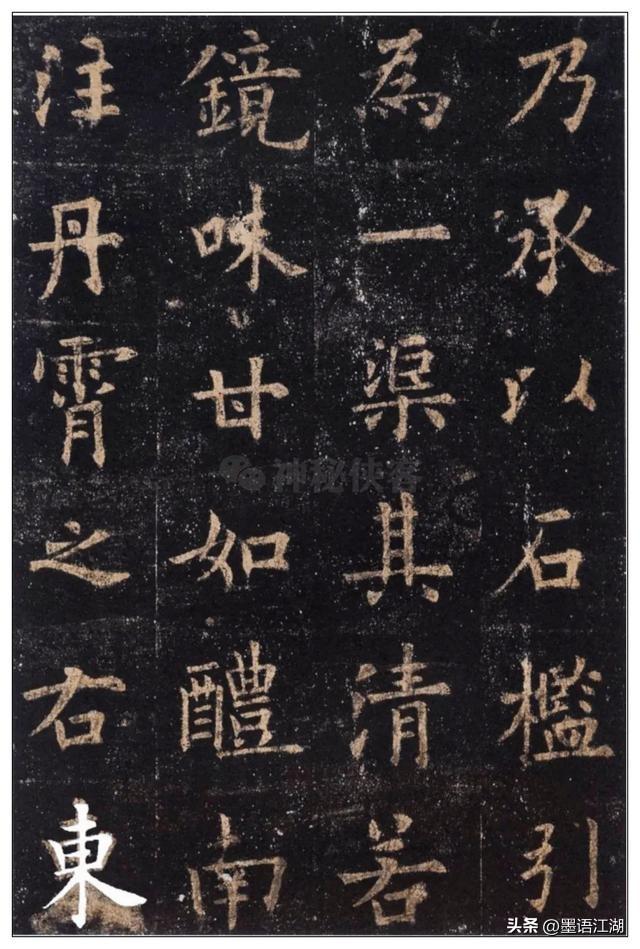 乃承以石檻引
為一渠其清若
鏡味甘如醴南
注丹霄之右東
神秘侠客
头条 @墨语江湖